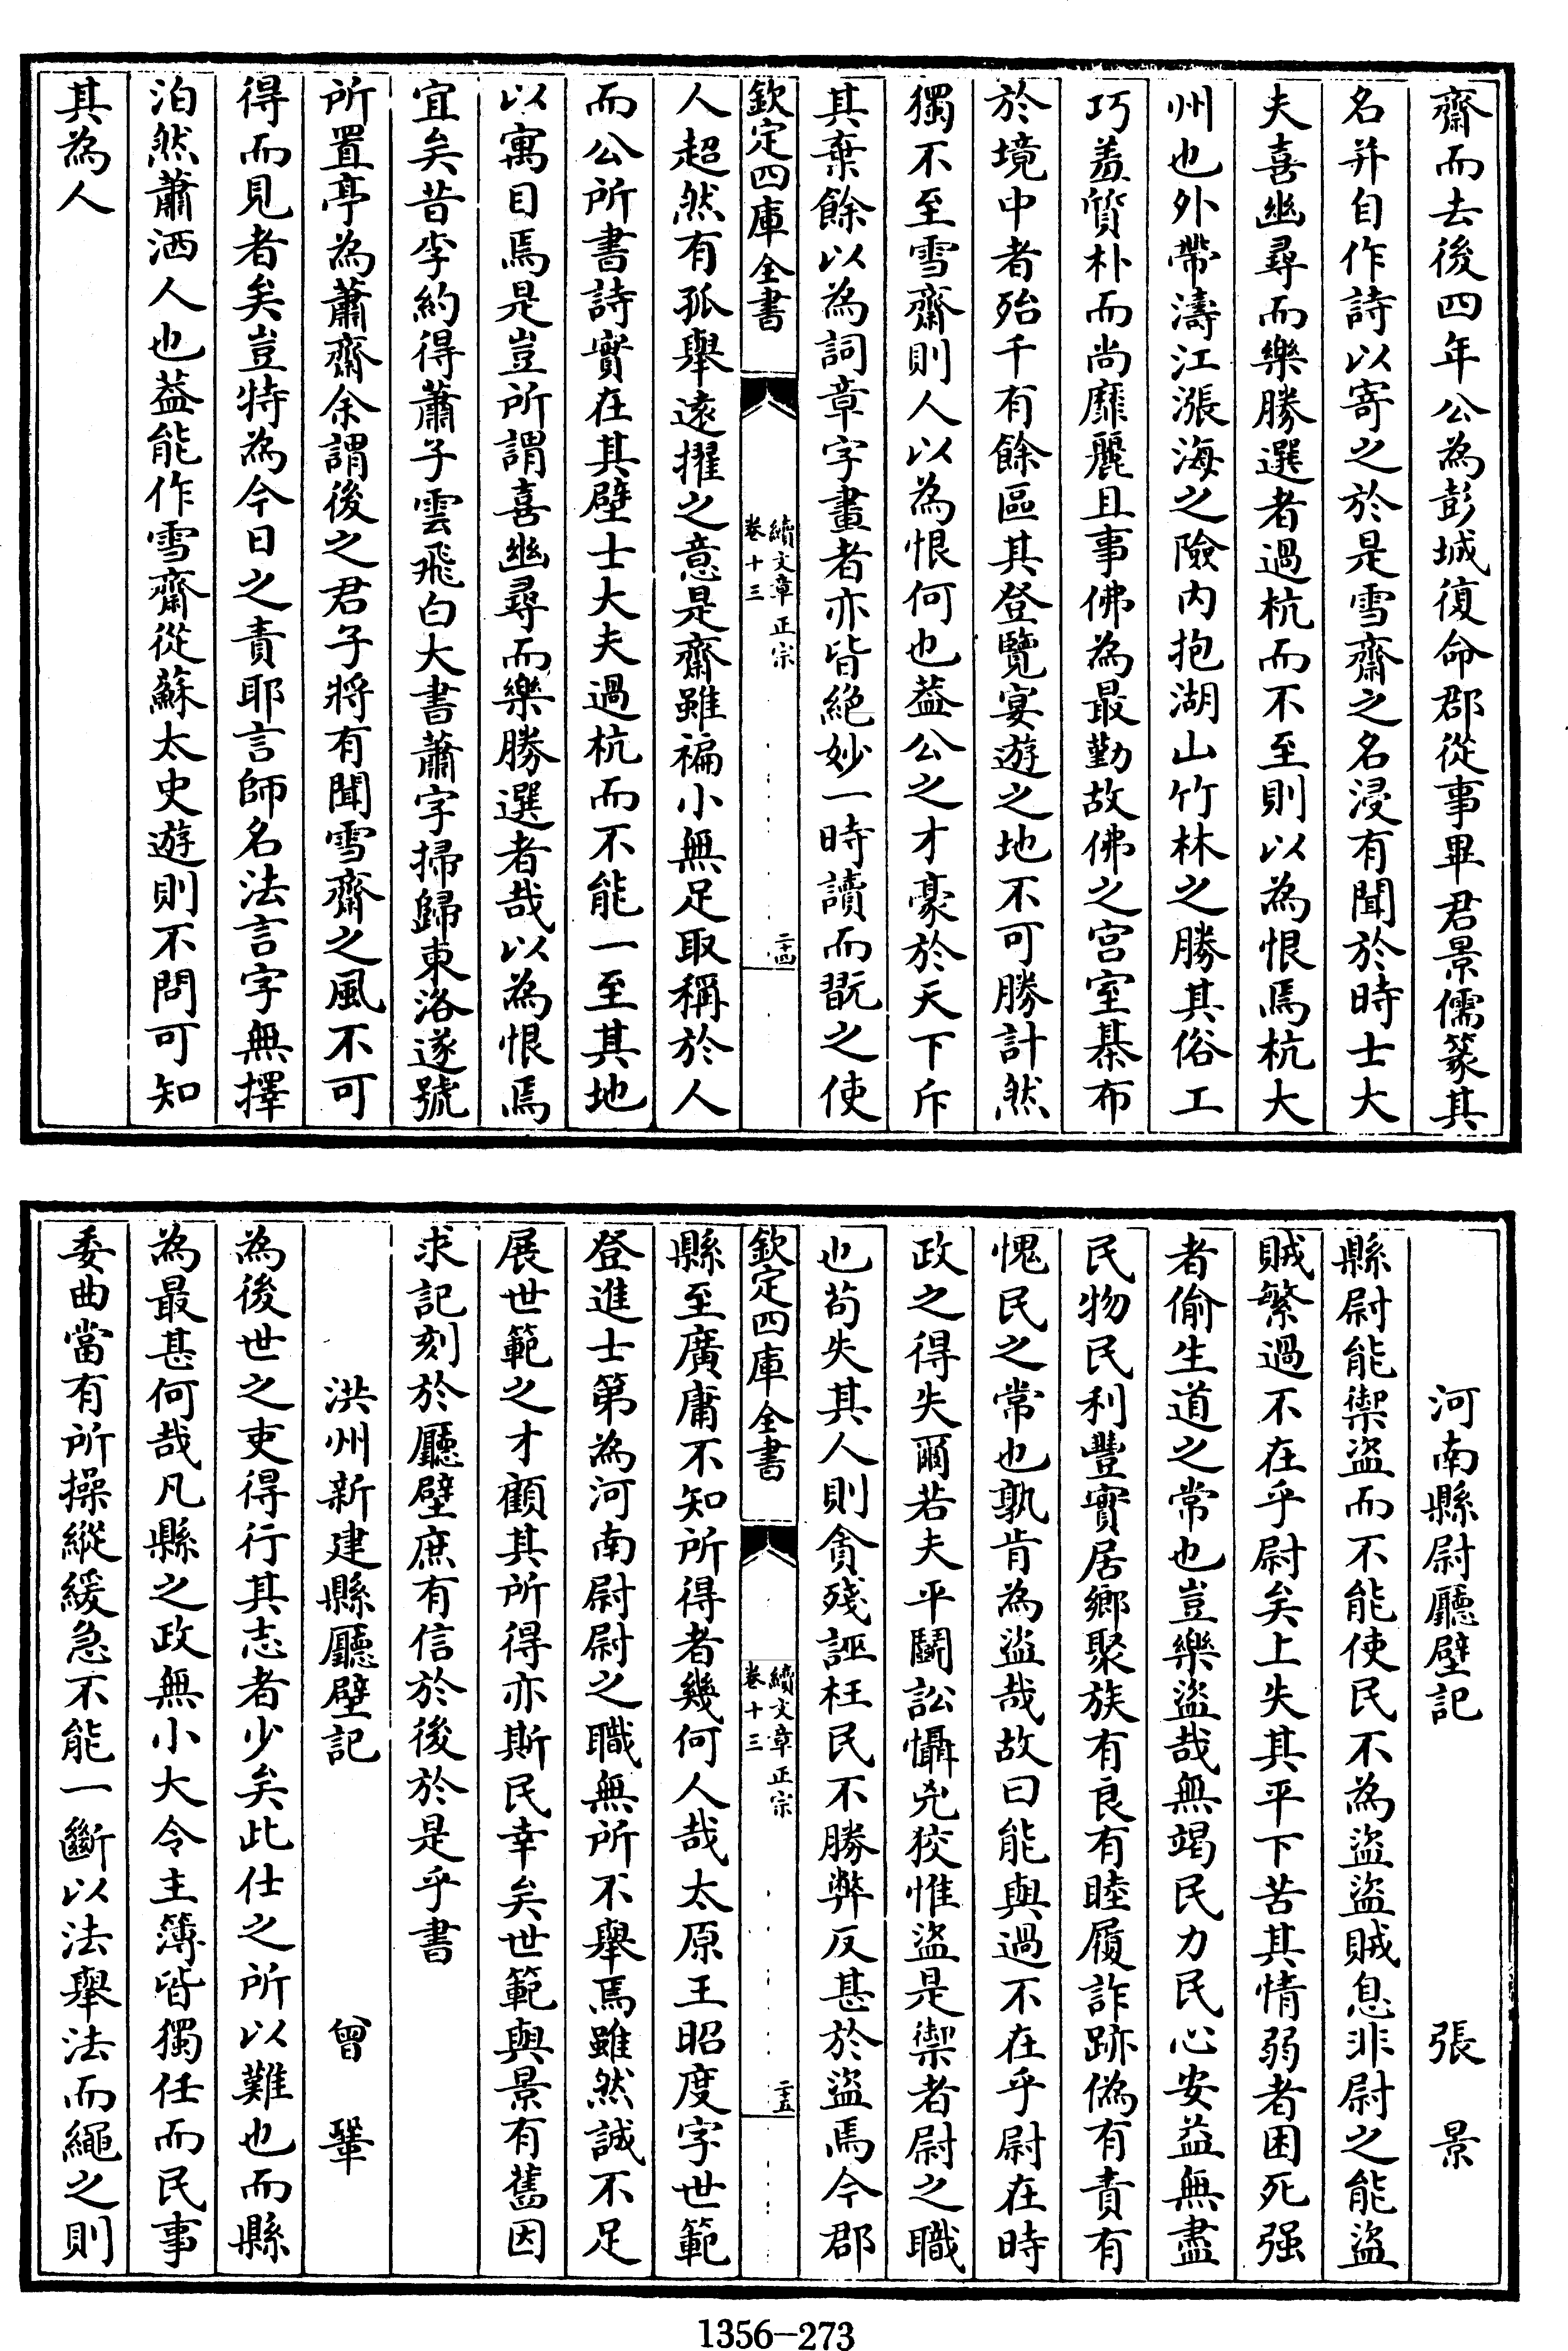 齋而去後四年公為彭城復命郡從事畢君景儒篆其
名并自作詩以寄之於是雪齋之名浸有聞於時士大
夫喜幽尋而樂勝選者過杭而不至則以為恨焉杭大
州也外帶濤江漲海之險内抱湖山竹林之勝其俗工
巧羞質朴而尚靡麗且事佛為最勤故佛之宫室棊布
於境中者殆千有餘區其登覽宴遊之地不可勝計然
獨不至雪齋則人以為恨何也葢公之才豪於天下斥
其棄餘以為詞章字畫者亦皆絶妙一時讀而翫之使
欽定四庫全書
續文章正宗
卷十三
二十四
人超然有孤舉遠擢之意是齋雖褊小無足取稱於人
而公所書詩實在其壁士大夫過杭而不能一至其地
以寓目焉是豈所謂喜幽尋而樂勝選者哉以為恨焉
宜矣昔李約得蕭子雲飛白大書蕭字掃歸東洛遂號
所置亭為蕭齋余謂後之君子將有聞雪齋之風不可
得而見者矣豈特為今日之責耶言師名法言字無擇
泊然蕭洒人也葢能作雪齋從蘇太史遊則不問可知
其為人
河南縣尉廳壁記 張景
縣尉能禦盜而不能使民不為盜盜賊息非尉之能盜
賊繁過不在乎尉矣上失其平下苦其情弱者困死强
者偷生道之常也豈樂盜哉無竭民力民心安益無盡
民物民利豐實居鄉聚族有良有睦履詐跡偽有責有
愧民之常也孰肯為盜哉故曰能與過不在乎尉在時
政之得失爾若夫平鬭訟懾兇狡惟盜是禦者尉之職
也苟失其人則貪殘誣枉民不勝弊反甚於盜焉今郡
欽定四庫全書
續文章正宗
卷十三
二十五
縣至廣庸不知所得者幾何人哉太原王昭度字世範
登進士第為河南尉尉之職無所不舉焉雖然誠不足
展世範之才顧其所得亦斯民幸矣世範與景有舊因
求記刻於廳壁庶有信於後於是乎書
洪州新建縣廳壁記 曾鞏
為後世之吏得行其志者少矣此仕之所以難也而縣
為最甚何哉凡縣之政無小大令主簿皆獨任而民事
委曲當有所操縱緩急不能一斷以法舉法而繩之則
1356-273